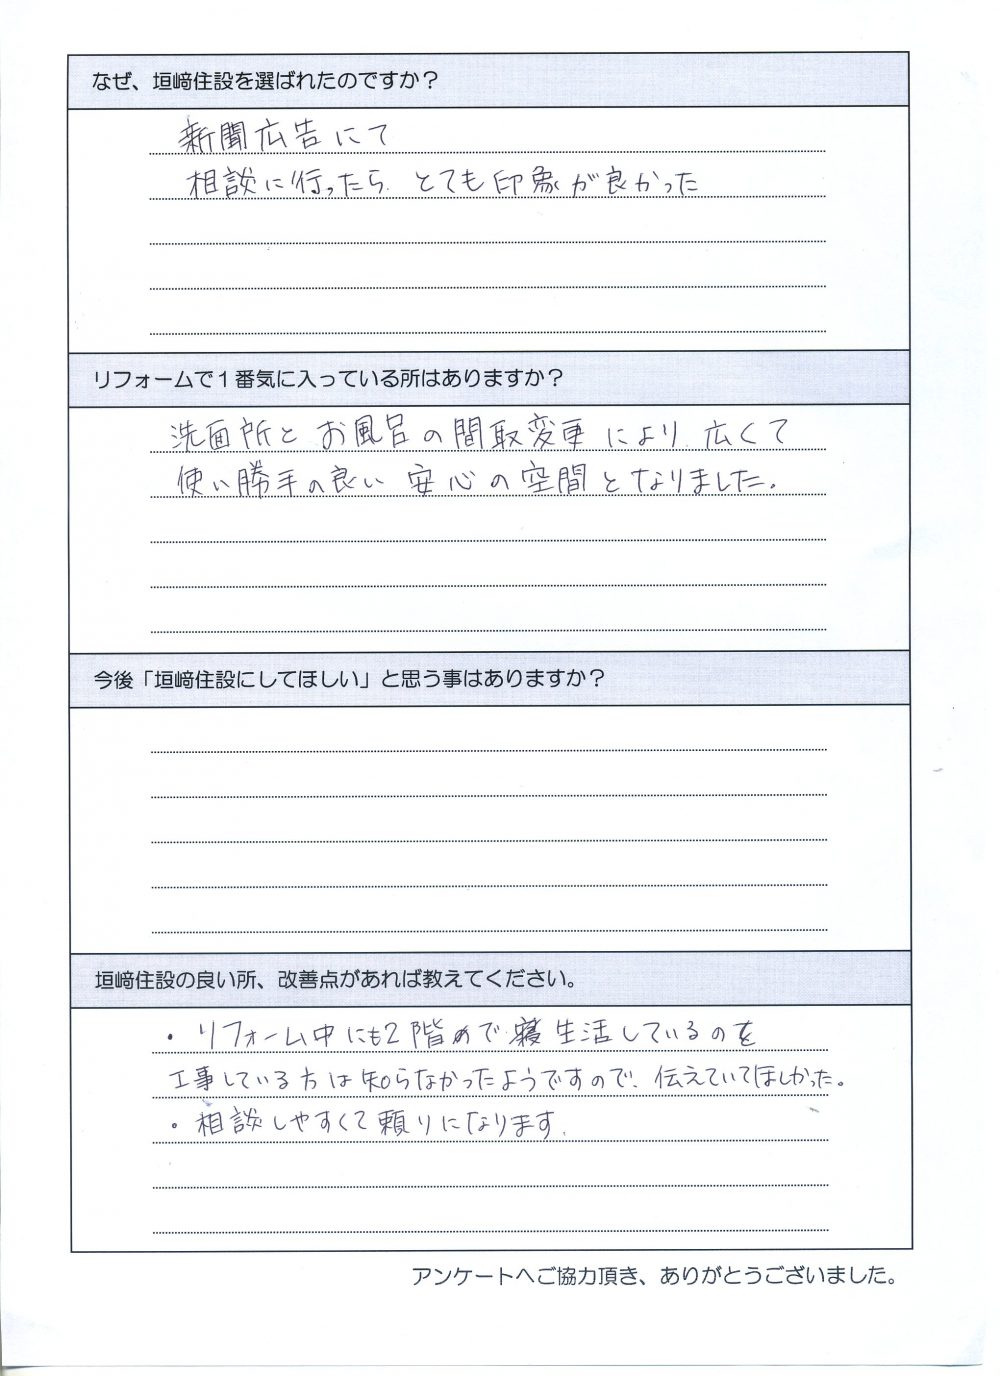 なぜ、垣﨑住設を選ばれたのですか？
新聞広告にて
相談に行ったら、とても印象が良かった
リフォームで１番気に入っている所はありますか？
洗面所とお風呂の間取変更により、広くて
使い勝手の良い安心の空間となりました。
今後「垣﨑住設にしてほしい」と思う事はありますか？
垣﨑住設の良い所、改善点があれば教えてください。
・リフォーム中にも2階めで寝生活しているのを
工事している方は知らなかったようですので、伝えていてほしかった。
・相談しやすくて頼りになります。
アンケートへご協力頂き、ありがとうございました。